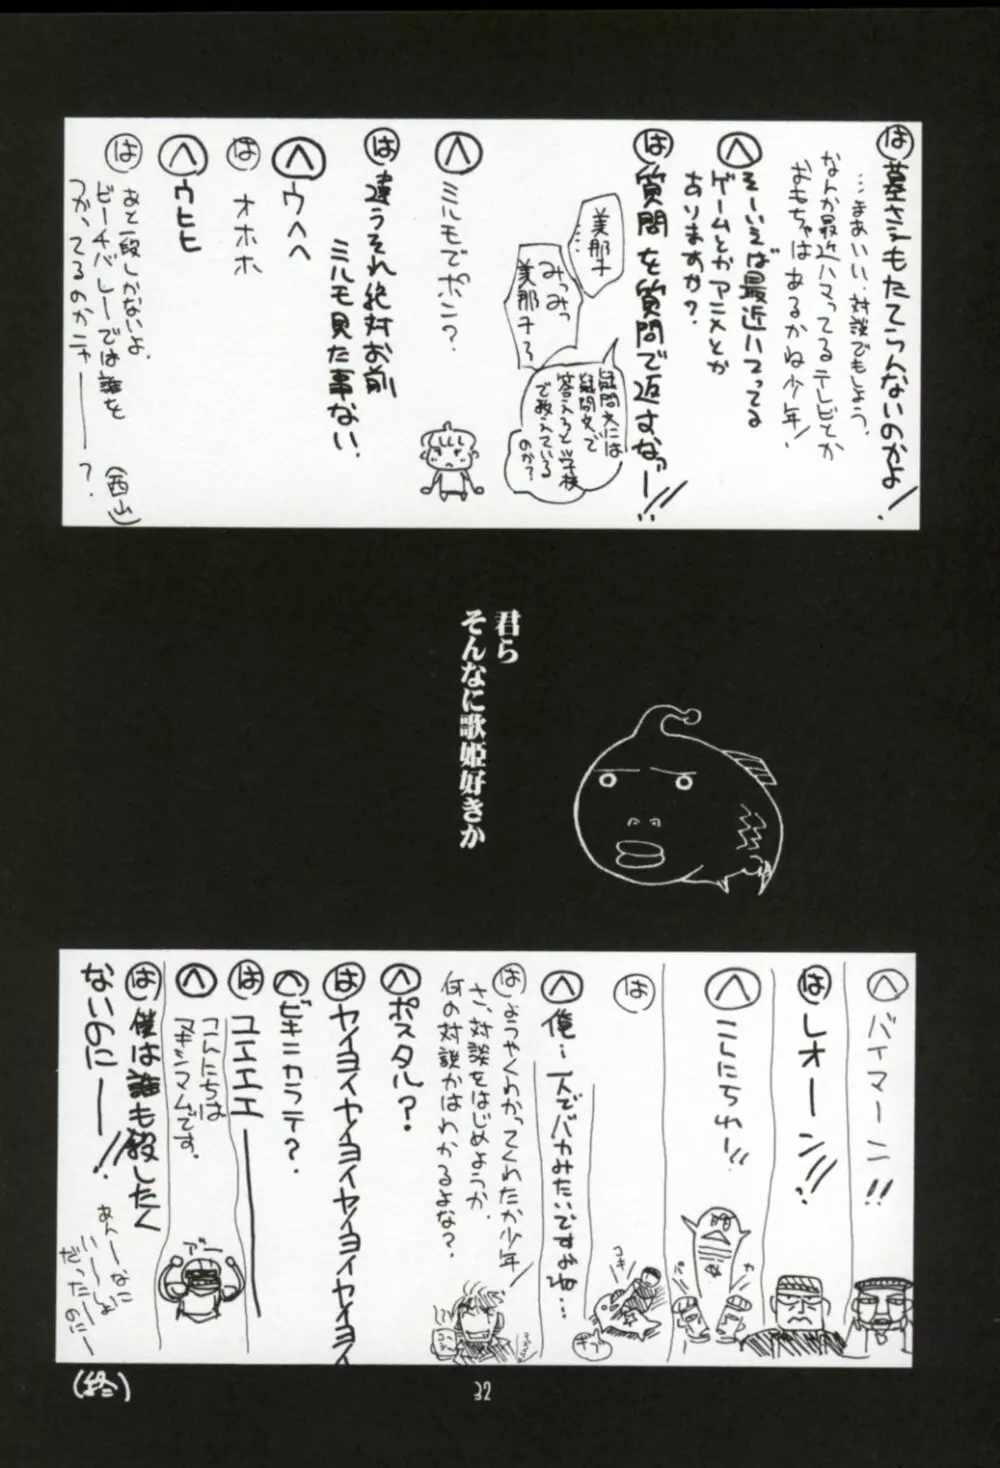 は 墓さえもたてらんないのかよ！
…まあいい、対談でもしよう。
なんか最近ハマってるテレビとか
おもちゃはあるかね少年！
へ そーいえば最近ハマってる
ゲームとかアニメとか
ありますか？
は 質問を質問で返すなーッ!!
美那子…
みっみっ
美那子ぅ
疑問文には
疑問文で
答えろと学校
で教えている
のか？
へ ミルモでポン？
は 違うそれ絶対お前
ミルモ見た事ない。
へ ウヘヘ
は オホホ
へ ウヒヒ
は あと一段しかないよ。
ビーチバレーでは誰を
つかってるのかニャーーー？
(西山)
君ら
そんなに歌姫好きか
へ バイマーン!!
は レオーン!!
へ こんにちわー!!
は
コキ
ギブ
へ 俺…一人でバカみたいですよね…
は ようやくわかってくれたか少年！
さ、対談をはじめようか。
何の対談かはわかるよな？
へ ポスタル？
は ヤイヨイヤイヨイヤイヨイヤイヨイ
へ ビキニカラテ？
は ユエエエーーー
へ こんにちは
マキシマムです。
アー
は 僕は誰も殺したく
ないのにーー!!
あんーなに
いーしょ
だったーのにー
(終)
32